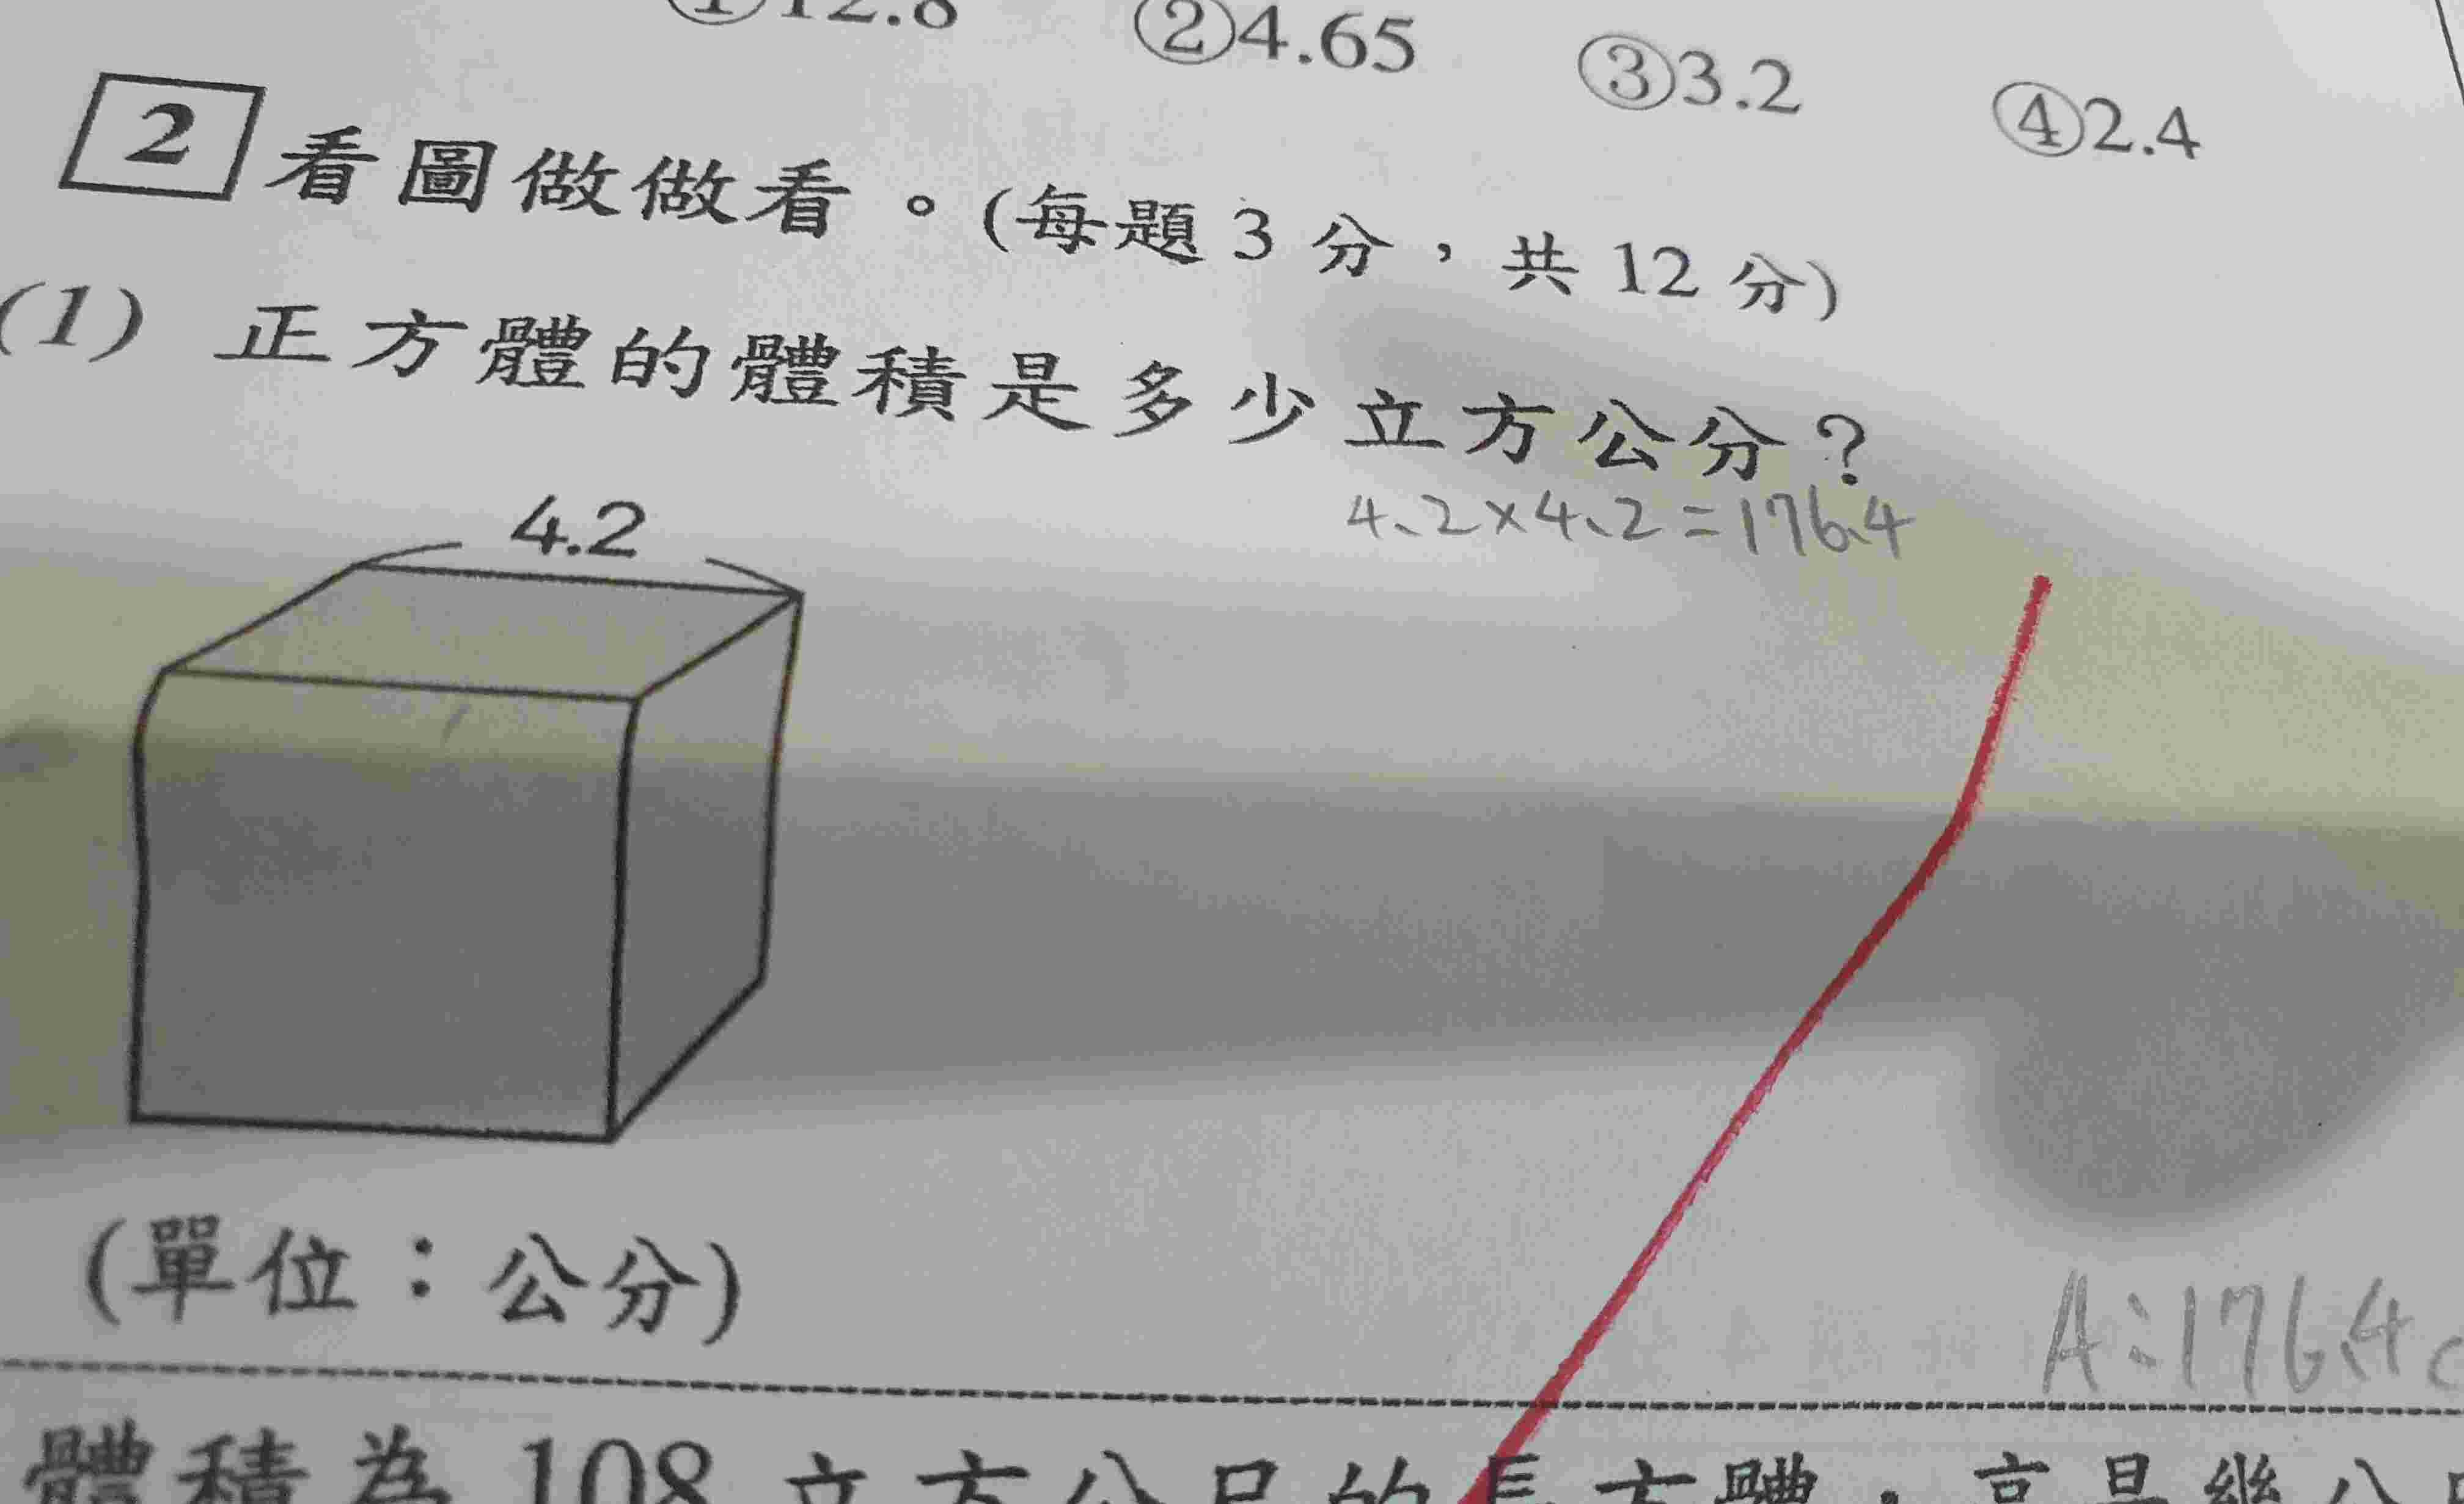 ①12.8 ②4.65 ③3.2 ④2.4
2 看圖做做看。(每題 3 分，共 12 分)
(1) 正方體的體積是多少立方公分？
4.2×4.2=176.4
4.2
(單位：公分)
A:176.4c
體積為 108 立方公尺的長方體，高是幾公